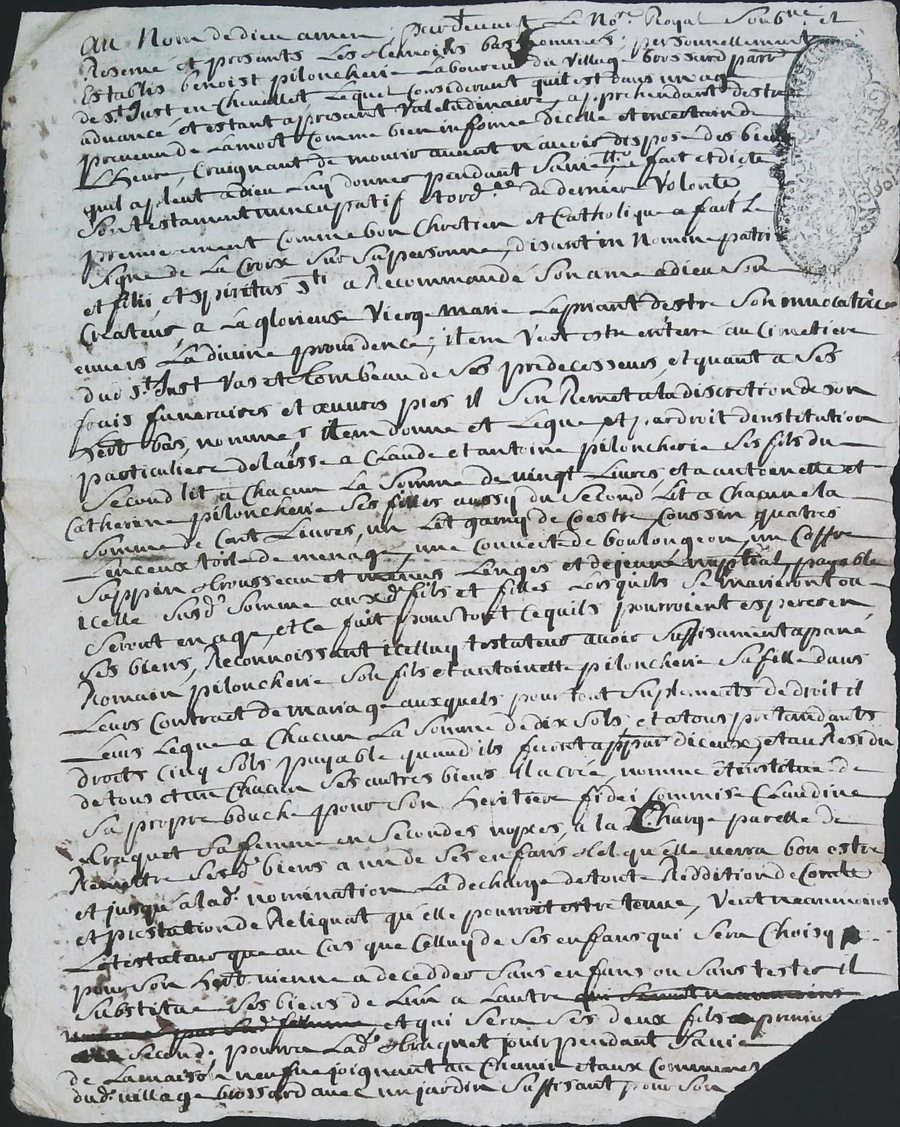 Au Nom de dieu amen, pardevant Le No.re Royal Soubne et
Reservé et presants Les temoins bas nommes; personnellement
Establis benoist piloncherie Laboureur du Village brossard parr
de St Just en Chevallet, Lequel Considerant quil est dans un age
advancé et estant a presant Valetudinaire, apprehendant destre
prevenu de Lamort Comme bien informé dicelle et incertain de
Lheure, Craignant de mourir avant n'avoir disposé des biens
quil a pleut a dieu Luy donner pendant Sa vie, a fait et dicté
Son testament nuncupatif et ord.ce de derniere Volonté,
premierement Comme bon Chretien et Catholique a fait Le
Signe de La Croix Sur Sa personne, disant in Nomine patris
et filii et Spiritus Sti a Recommandé Son ame a dieu Son
Createur, a La glorieuse Vierge Marie Lapriant destre Son advocatrice
envers La divine providence; item Veut estre enterré au Cimetiere
dud St Just Vas et tombeau de Ses predecesseurs, et quant a Ses
frais funeraires et œuvres pies il Sen Remet a la discretion de son
hert bas nommé, item donne et Legue et par droit dinstitution
particuliere delaisse a Claude et antoine piloncherie Ses fils du
Second lit a Chacun La Somme de vingt Livres, et a antoinette et
Catherine piloncherie Ses filles aussy du Second Lit a Chacune la
Somme de Cent Livres, un Let garny de Coestre, Coussin, quatres
Linceux toile de menage, une Couverte de boulongeon, un Coffre
Sappin trousseau et menus Linges et dejeuné nuptial payable
icelle Susd. Somme auxd. fils et filles Lorsquils Se marieront ou
Seront en age, et Ce fait pour tout Ce quils pourroient esperer en
Ses biens, Reconnoissant icelluy testateur avoir Suffisament apané
Romain piloncherie Son fils et antoinette piloncherie Sa fille dans
Leurs Contract de mariage auxquels pour tout Suplements de droit il
Leurs Legue a Chacun La Somme de dix Sols, et a tous pretendants
droits Cinq Sols payable quand ils feront apparr diceux; et au Residu
de tous et un Chacun Ses autres biens il a Créé, nommé et institué de
Sa propre bouche pour Son heritiere fidei Commise Claudine
traquet Sa femme en Secondes nopces, a la Charge par elle de
Remettre Sesd. biens a un de Ses enfans tel qu'elle verra bon estre
et jusqu'a lad. nomination La decharge de toute Reddition de Compte
et prestation de Reliquat qu'elle pourroit estre tenue, Veut neanmoins
Le testateur que au Cas que Celluy de Ses enfans qui Sera Choisy
pour Son hert vienne a decedder Sans enfans ou Sans tester il
Substitue Ses biens de Lun a Lautre
et qui Sera Ses deux fils premier
Second. pourra Lad. traquet jouir pendant Sa vie
de La maison neufve joignant au Chemin et aux Communes
dud. village brossard avec un jardin Suffisant pour Son